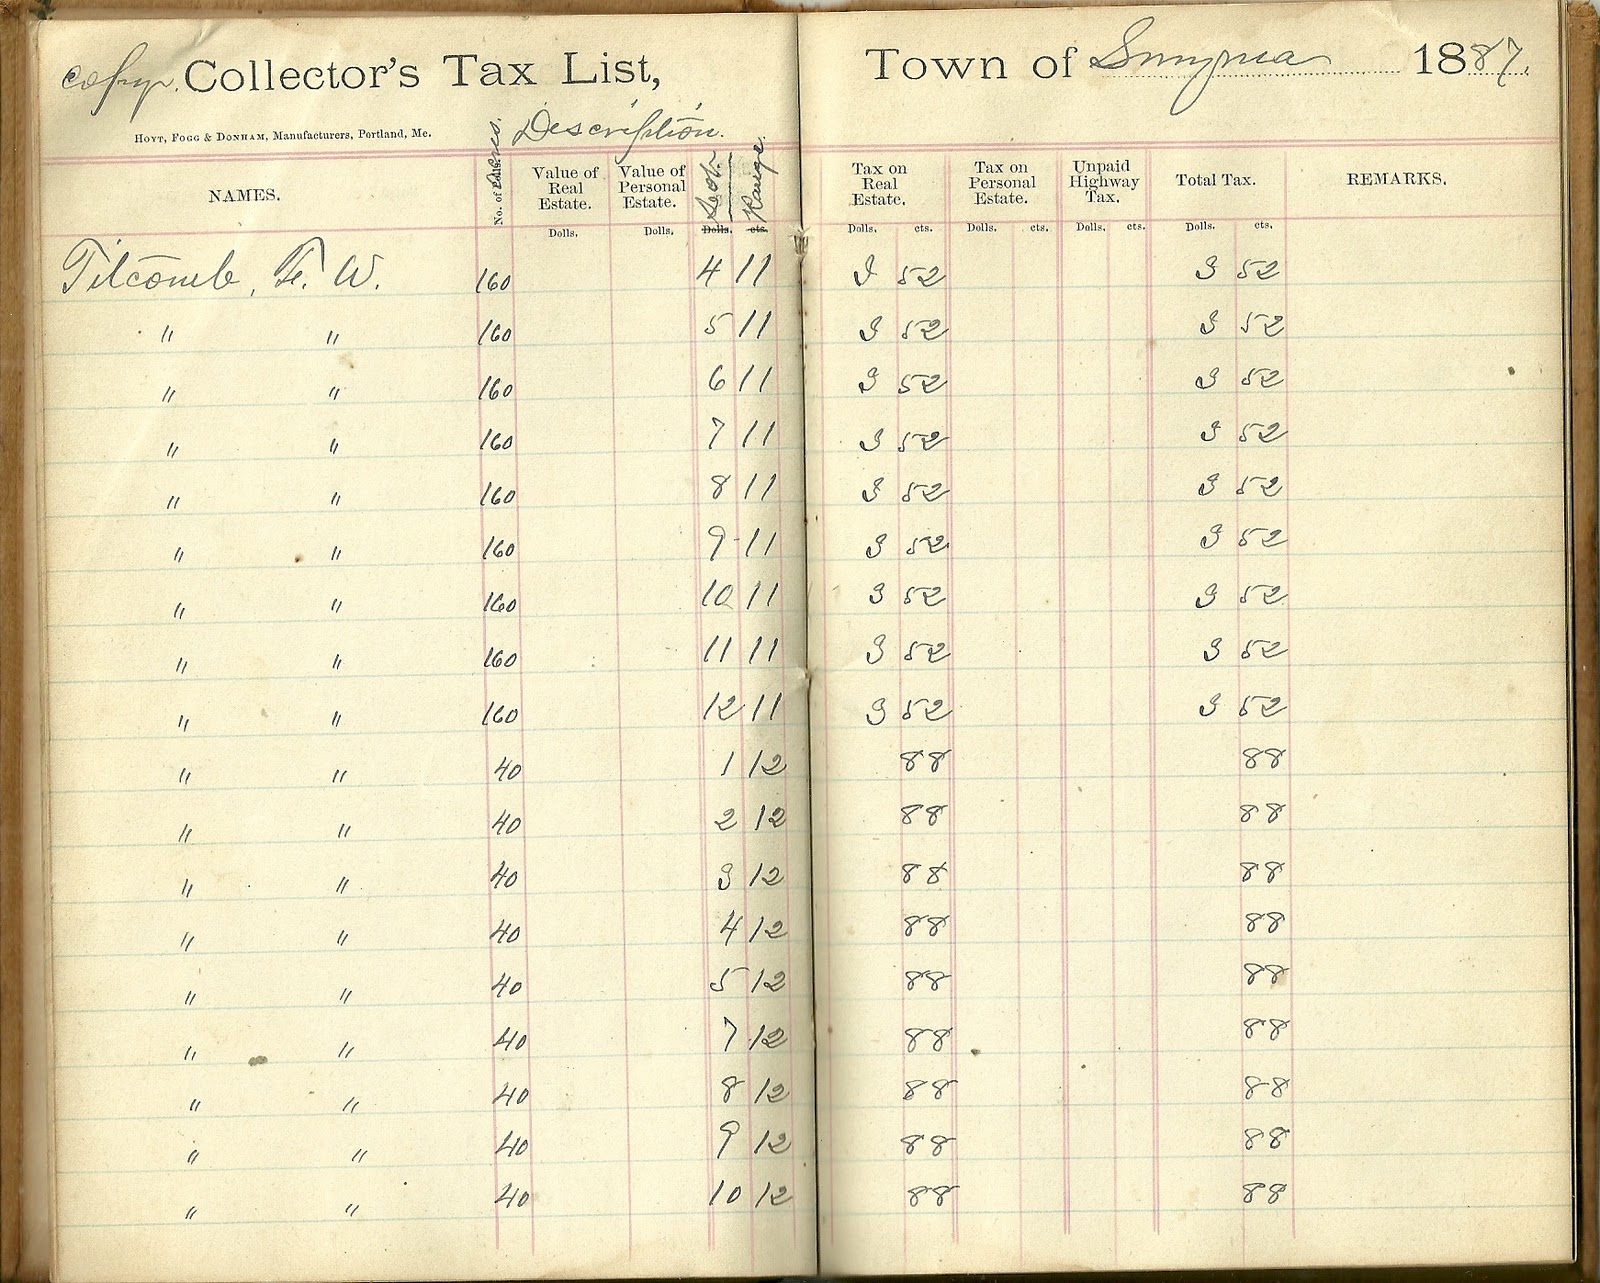 copy. Collector's Tax List, Town of Smyrna 1887.
Hoyt, Fogg & Donham, Manufacturers, Portland, Me. Description.
NAMES. No. of Acres. Value of Real Estate. Value of Personal Estate. Lot. Range. Tax on Real Estate. Tax on Personal Estate. Unpaid Highway Tax. Total Tax. REMARKS.
Dolls. Dolls. Dolls. cts. Dolls. cts. Dolls. cts. Dolls. cts. Dolls. cts.
Titcomb, F. W. 160 4 11 3 52 3 52
" " 160 5 11 3 52 3 52
" " 160 6 11 3 52 3 52
" " 160 7 11 3 52 3 52
" " 160 8 11 3 52 3 52
" " 160 9 11 3 52 3 52
" " 160 10 11 3 52 3 52
" " 160 11 11 3 52 3 52
" " 160 12 11 3 52 3 52
" " 40 1 12 88 88
" " 40 2 12 88 88
" " 40 3 12 88 88
" " 40 4 12 88 88
" " 40 5 12 88 88
" " 40 7 12 88 88
" " 40 8 12 88 88
" " 40 9 12 88 88
" " 40 10 12 88 88